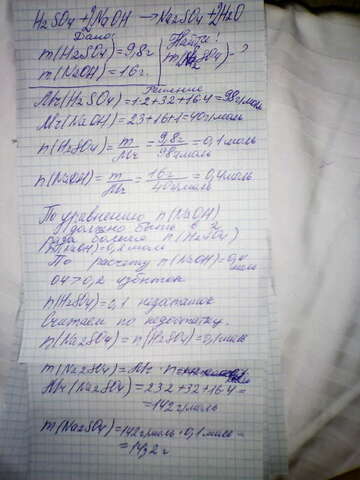 H₂SO₄ + 2NaOH → Na₂SO₄ + 2H₂O
Дано: Найти:
m(H₂SO₄) = 9,8г m(Na₂SO₄) - ?
m(NaOH) = 16г.
Решение
Mr(H₂SO₄) = 1·2+32+16·4 = 98г/моль
Mr(NaOH) = 23+16+1 = 40г/моль
n(H₂SO₄) = m/Mr = 9,8г/98г/моль = 0,1 моль
n(NaOH) = m/Mr = 16г/40г/моль = 0,4 моль
По уравнению n(NaOH)
должно быть в 2
раза больше n(H₂SO₄)
n(NaOH) = 0,2 моль
По расчету n(NaOH) = 0,4 моль
0,4 > 0,2 избыток
n(H₂SO₄) = 0,1 недостаток
Считаем по недостатку.
n(Na₂SO₄) = n(H₂SO₄) = 0,1 моль
m(Na₂SO₄) = Mr · n =
Mr(Na₂SO₄) = 23·2+32+16·4 =
= 142г/моль
m(Na₂SO₄) = 142г/моль · 0,1 моль =
= 14,2 г